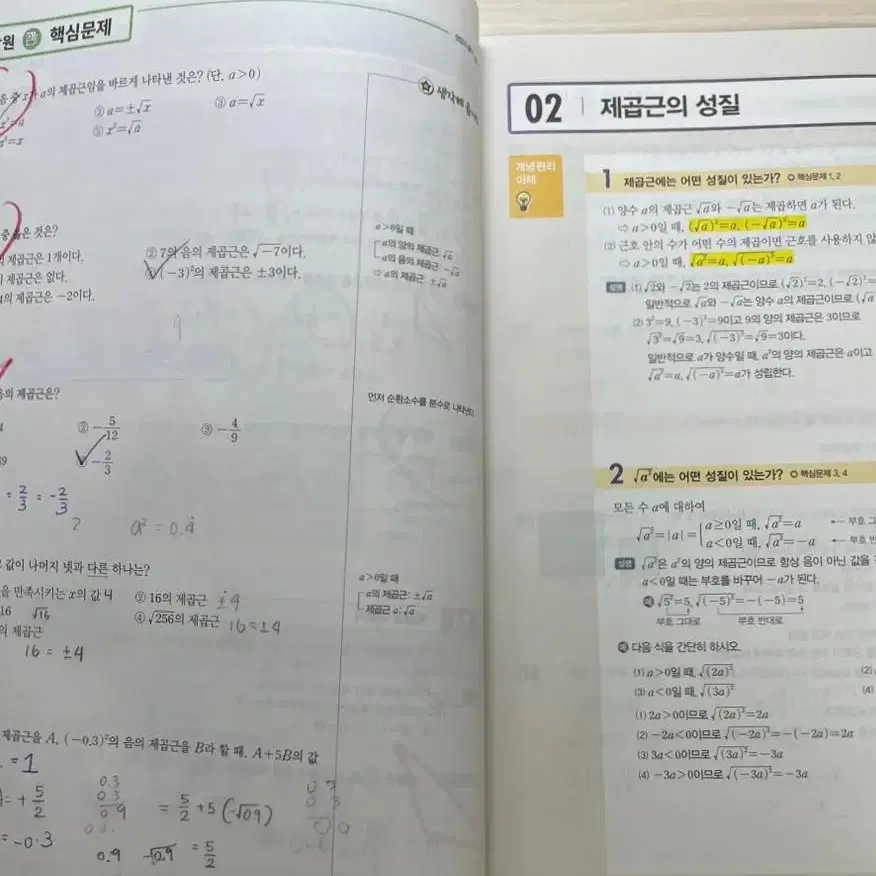 핵심문제
a의 제곱근임을 바르게 나타낸 것은? (단, a>0)
② a=±√x
③ a=√x
⑤ x²=√a
a>0일 때
a의 양의 제곱근: √a
a의 음의 제곱근: -√a
⇨ a의 제곱근: ±√a
은 것은?
제곱근은 1개이다.
② 7의 음의 제곱근은 √-7이다.
제곱근은 없다.
(-3)²의 제곱근은 ±3이다.
제곱근은 -2이다.
9
의 제곱근은?
먼저 순환소수를 분수로
② -5/12
③ -4/9
-2/3
= 2/3 = -2/3
2
a² = 0.4̇
값이 나머지 넷과 다른 하나는?
a>0일 때
a의 제곱근: ±√a
제곱근 a: √a
을 만족시키는 x의 값 4
② 16의 제곱근 ±4
16 √16
④ √256의 제곱근 16=±4
의 제곱근
16 = ±4
제곱근을 A, (-0.3)²의 음의 제곱근을 B라 할 때, A+5B의 값
=1
= + 5/2
0.3
0.3
0.9
= 5/2 +5 (-√0.9)
= -0.3
0.9 -√0.9 = 5/2
02 제곱근의 성질
개념원리
이해
1 제곱근에는 어떤 성질이 있는가? 핵심문제 1, 2
(1) 양수 a의 제곱근 √a와 -√a는 제곱하면 a가 된다.
⇨ a>0일 때, (√a)²=a, (-√a)²=a
(2) 근호 안의 수가 어떤 수의 제곱이면 근호를 사용하지 않
⇨ a>0일 때, √a²=a, √(-a)²=a
설명 (1) √2와 -√2는 2의 제곱근이므로 (√2)²=2, (-√2)²=
일반적으로 √a와 -√a는 양수 a의 제곱근이므로 (√a
(2) 3²=9, (-3)²=9이고 9의 양의 제곱근은 3이므로
√3²=√9=3, √(-3)²=√9=3이다.
일반적으로 a가 양수일 때, a²의 양의 제곱근은 a이고
√a²=a, √(-a)²=a가 성립한다.
2 √a²에는 어떤 성질이 있는가? 핵심문제 3, 4
모든 수 a에 대하여
√a²=|a|= a≥0일 때, √a²=a ← 부호 그
a<0일 때, √a²=-a ← 부호 반
설명 √a²은 a²의 양의 제곱근이므로 항상 음이 아닌 값을
a<0일 때는 부호를 바꾸어 -a가 된다.
예 √5²=5, √(-5)²=-(-5)=5
부호 그대로 부호 반대로
예 다음 식을 간단히 하시오.
(1) a>0일 때, √(2a)²
(2)
(3) a<0일 때, √(3a)²
(4)
(1) 2a>0이므로 √(2a)²=2a
(2) -2a<0이므로 √(-2a)²=-(-2a)=2a
(3) 3a<0이므로 √(3a)²=-3a
(4) -3a>0이므로 √(-3a)²=-3a